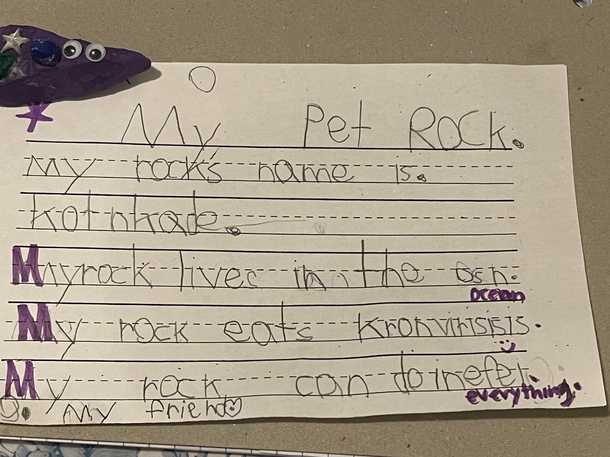 My Pet Rock.
My rock's name is.
kotnkade.
My rock lives in the osh.
ocean
My rock eats kronvirisisis.
My rock can do inefer.
everything.
g. My friend